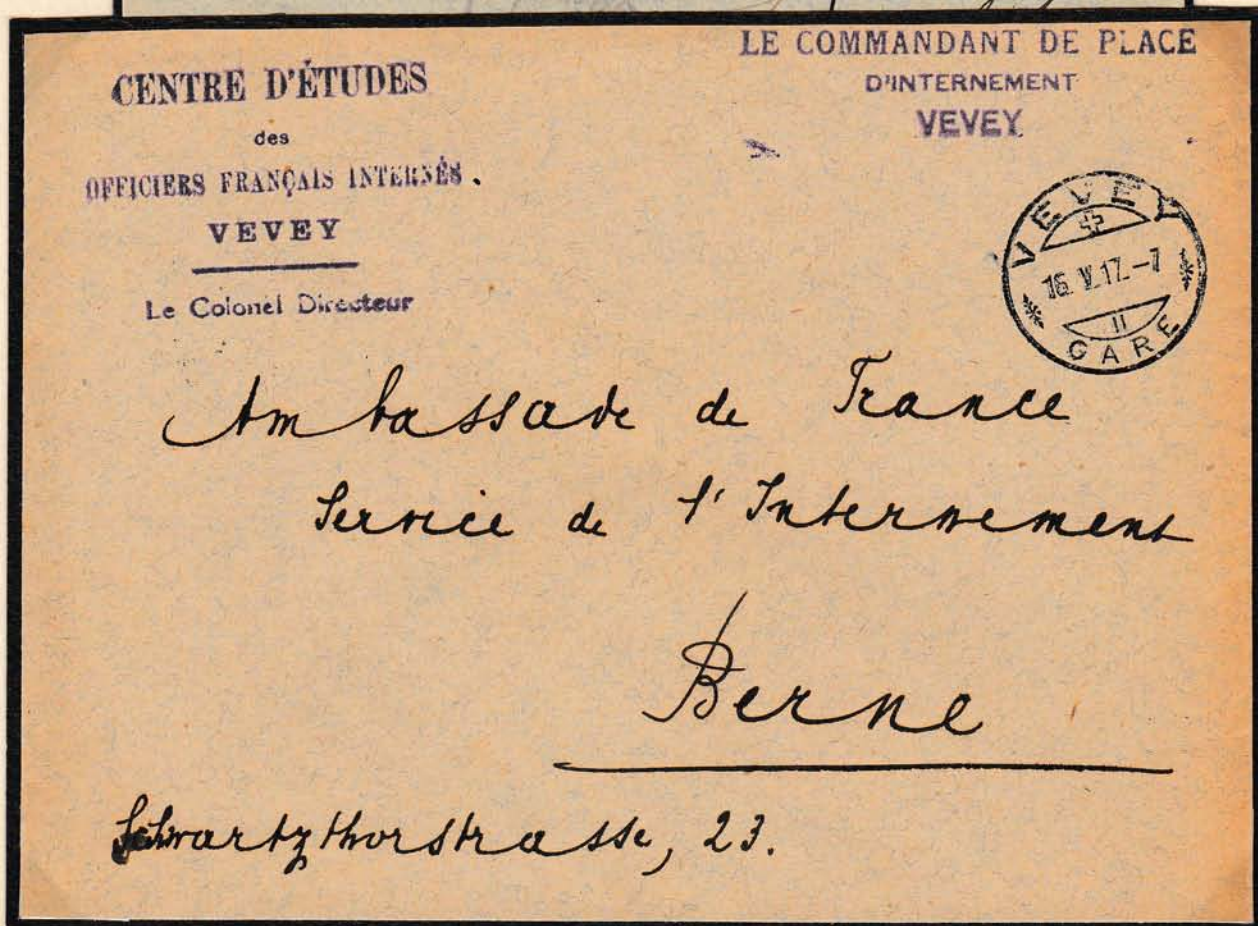 CENTRE D'ÉTUDES
des
OFFICIERS FRANÇAIS INTERNÉS.
VEVEY
Le Colonel Directeur
LE COMMANDANT DE PLACE
D'INTERNEMENT
VEVEY
VEVEY
16.V.17.-7
II
GARE
Ambassade de France
Service de l'Internement
Berne
Schwartzthorstrasse, 23.